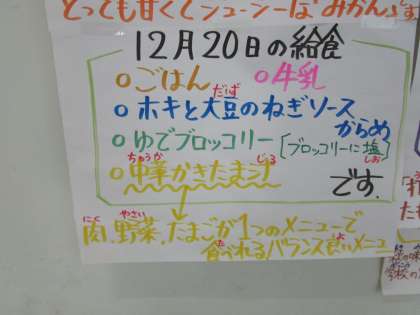 とっても甘くてジューシーな みかんです
12月20日の給食
○ごはん ○牛乳
だいず
○ホキと大豆のねぎソース
からめ
○ゆでブロッコリー [ブロッコリーに塩]
しお
ちゅうか じる
○中華かきたま汁
です。
にく やさい
肉、野菜、たまごが1つのメニューで
食べれるバランス良いメニュー